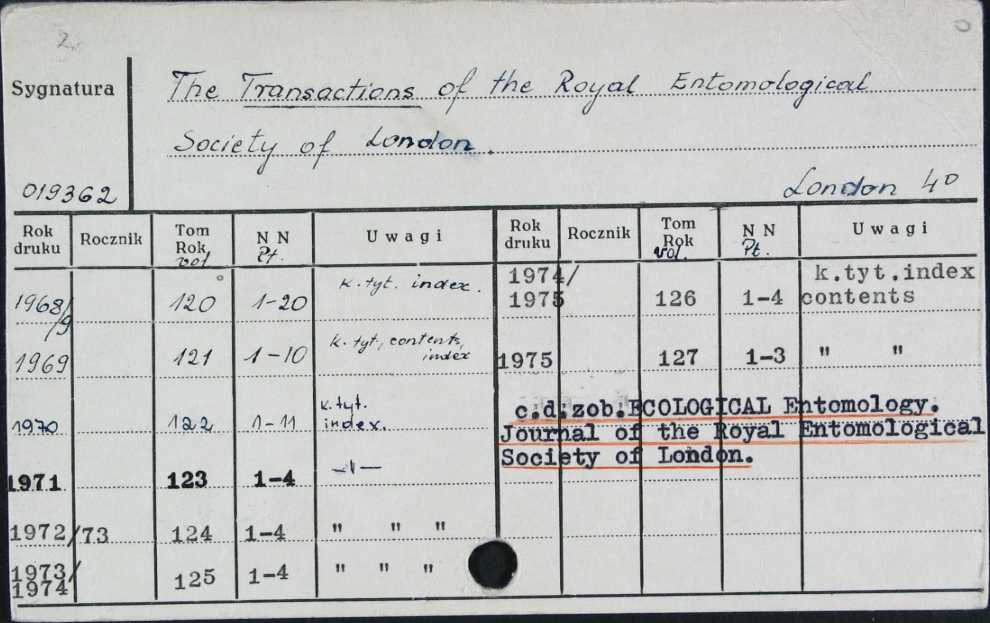 2.
0
Sygnatura
The Transactions of the Royal Entomological
Society of London.
019362
London 40
Rok druku Rocznik Tom Rok, vol N N Pt. Uwagi
1968/9 120 1-20 k. tyt. index.
1969 121 1-10 k. tyt., contents, index
1970 122 1-11 k. tyt. index.
1971 123 1-4 -"-
1972/73 124 1-4 " " "
1973/1974 125 1-4 " " "
Rok druku Rocznik Tom Rok vol. N N Pt. Uwagi
1974/1975 126 1-4 k.tyt.index contents
1975 127 1-3 " "
c.d.zob.ECOLOGICAL Entomology.
Journal of the Royal Entomological
Society of London.